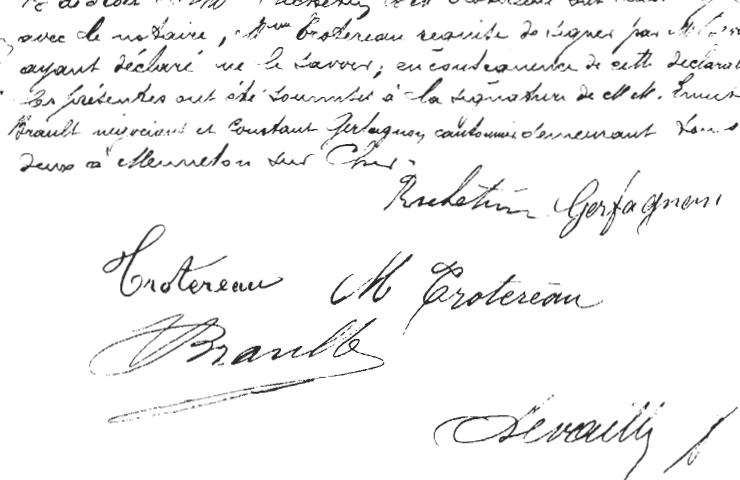 avec le notaire, Mme Trotereau requise de signer par Me
ayant déclaré ne le savoir; en conséquence de cette déclarat
les présentes ont été soumises à la signature de MM. Ernest
Brault négociant et Constant Gerfagnon cantonnier demeurant tous
deux à Mennetou sur Cher.
Gerfagnon
Trotereau M Trotereau
Brault